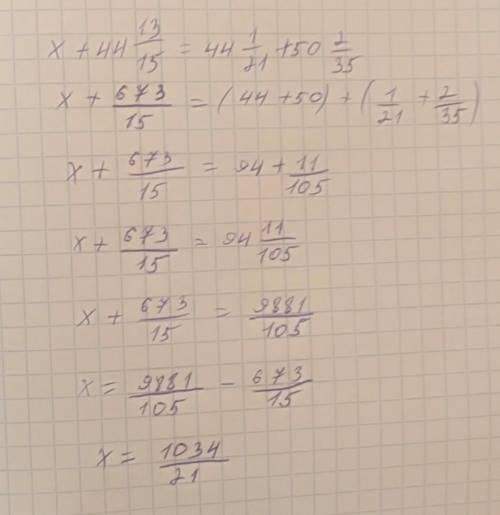 x + 44 13/15 = 44 1/21 + 50 2/35
x + 673/15 = (44 + 50) + (1/21 + 2/35)
x + 673/15 = 94 + 11/105
x + 673/15 = 94 11/105
x + 673/15 = 9881/105
x = 9881/105 - 673/15
x = 1034/21